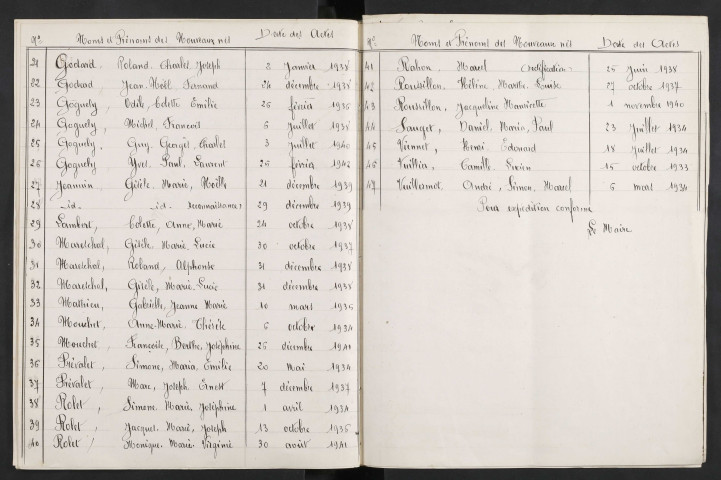 Nos Noms et Prénoms des Nouveaux nés Date des Actes
21 Godard, Roland. Charles. Joseph 2 janvier 1938
22 Godard, Jean. Noël. Fernand 24 décembre 1938
23 Goguely, Odile, Colette Emilie 25 février 1936
24 Goguely, Michel, François 5 juillet 1938
25 Goguely, Guy, Georges Charles 3 juillet 1940
26 Goguely Yves. Paul, Laurent 25 février 1942
27 Jeannin, Gisèle, Marie, Noëlle 21 décembre 1939
28 -id- -id- reconnaissance 29 décembre 1939
29 Lambert, Colette, Anne, Marie 24 octobre 1938
30 Maréchal, Gisèle. Marie. Lucie 30 octobre 1937
31 Maréchal, Roland, Alphonse 31 décembre 1938
32 Maréchal, Gisèle, Marie. Lucie 31 décembre 1938
33 Mathieu, Gabrielle, Jeanne Marie 10 mars 1935
34 Mouchet, Anne-Marie. Thérèse 6 octobre 1934
35 Mouchet, Françoise, Berthe, Joséphine 25 décembre 1941
36 Prévalet, Simone, Maria, Emilie 20 mai 1934
37 Prévalet, Marc, Joseph. Ernest 7 décembre 1937
38 Rolet, Simone. Marie, Joséphine 1 avril 1934
39 Rolet, Jacques. Marie, Joseph 13 octobre 1935
40 Rolet, Monique. Marie. Virginie 30 août 1941
Nos Noms et Prénoms des Nouveaux nés Date des Actes
41 Rahon, Marcel (rectification) 25 juin 1938
42 Roussillon, Hélène. Marthe. Louise 27 octobre 1937
43 Roussillon, Jacqueline Henriette 1 novembre 1940
44 Sauget, Daniel, Marie, Paul 23 juillet 1934
45 Viennet, Henri Edouard 18 juillet 1934
46 Vuillin, Camille 15 octobre 1933
47 Vuillamet, André, Simon, Marcel 6 mars 1934
Pour expédition conforme
Le Maire